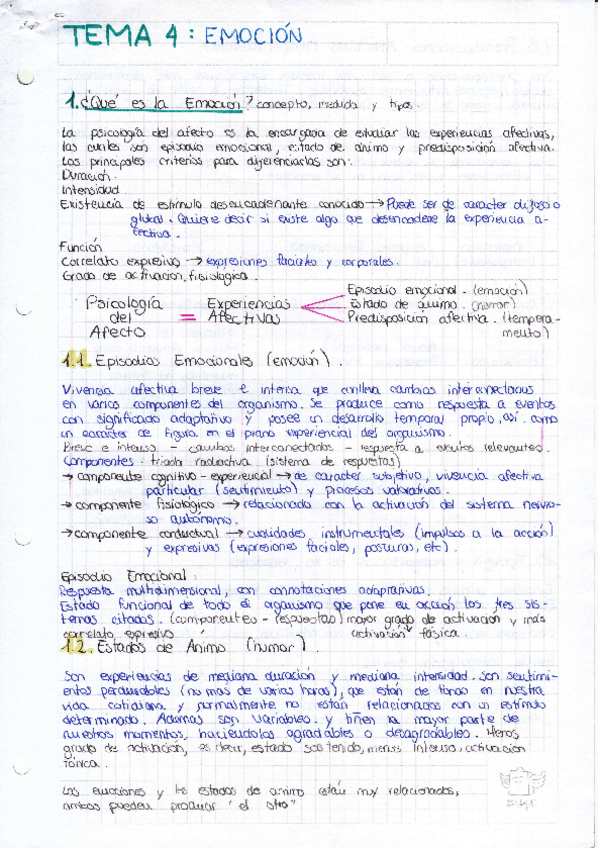 TEMA 4: EMOCIÓN
1. ¿Qué es la Emoción? concepto, medida y tipos.
La psicología del afecto es la encargada de estudiar las experiencias afectivas,
las cuales son episodio emocional, estado de ánimo y predisposición afectiva.
Los principales criterios para diferenciarlas son:
Duración.
Intensidad
Existencia de estímulo desencadenante conocido → Puede ser de carácter difuso o
global. Quiere decir si existe algo que desencadene la experiencia a-
fectiva.
Función
Correlato expresivo → expresiones faciales y corporales.
Grado de activación fisiológica.
Psicología del Afecto = Experiencias Afectivas
Episodio emocional. (emoción)
Estado de ánimo. (humor)
Predisposición afectiva. (tempera-
mento)
1.1. Episodios Emocionales (emoción).
Vivencia afectiva breve e intensa que conlleva cambios interconectados
en varios componentes del organismo. Se produce como respuesta a eventos
con significado adaptativo y posee un desarrollo temporal propio, así como
un carácter de figura en el plano experiencial del organismo.
Breve e intenso - cambios interconectados - respuesta a eventos relevantes.
Componentes: triada reactiva (sistema de respuestas)
→ componente cognitivo-experiencial → de carácter subjetivo, vivencia afectiva
particular (sentimiento) y procesos valorativos.
→ componente fisiológico → relacionado con la activación del sistema nervio-
so autónomo.
→ componente conductual → cualidades instrumentales (impulsos a la acción)
y expresivas (expresiones faciales, posturas, etc).
Episodio Emocional:
Respuesta multidimensional, con connotaciones adaptativas.
Estado funcional de todo el organismo que pone en acción los tres sis-
temas citados. (componentes - respuestas) mayor grado de activación y más
correlato expresivo activación fásica.
1.2. Estados de Ánimo (humor).
Son experiencias de mediana duración y mediana intensidad. Son sentimi-
entos perdurables (no más de varias horas), que están de fondo en nuestra
vida cotidiana y normalmente no están relacionadas con un estímulo
determinado. Además son variables y tiñen la mayor parte de
nuestros momentos, haciéndolos agradables o desagradables. Menos
grado de activación, es decir, estado sostenido, menos intenso, activación
tónica.
Las emociones y los estados de ánimo están muy relacionados,
ambos pueden producir "el otro"